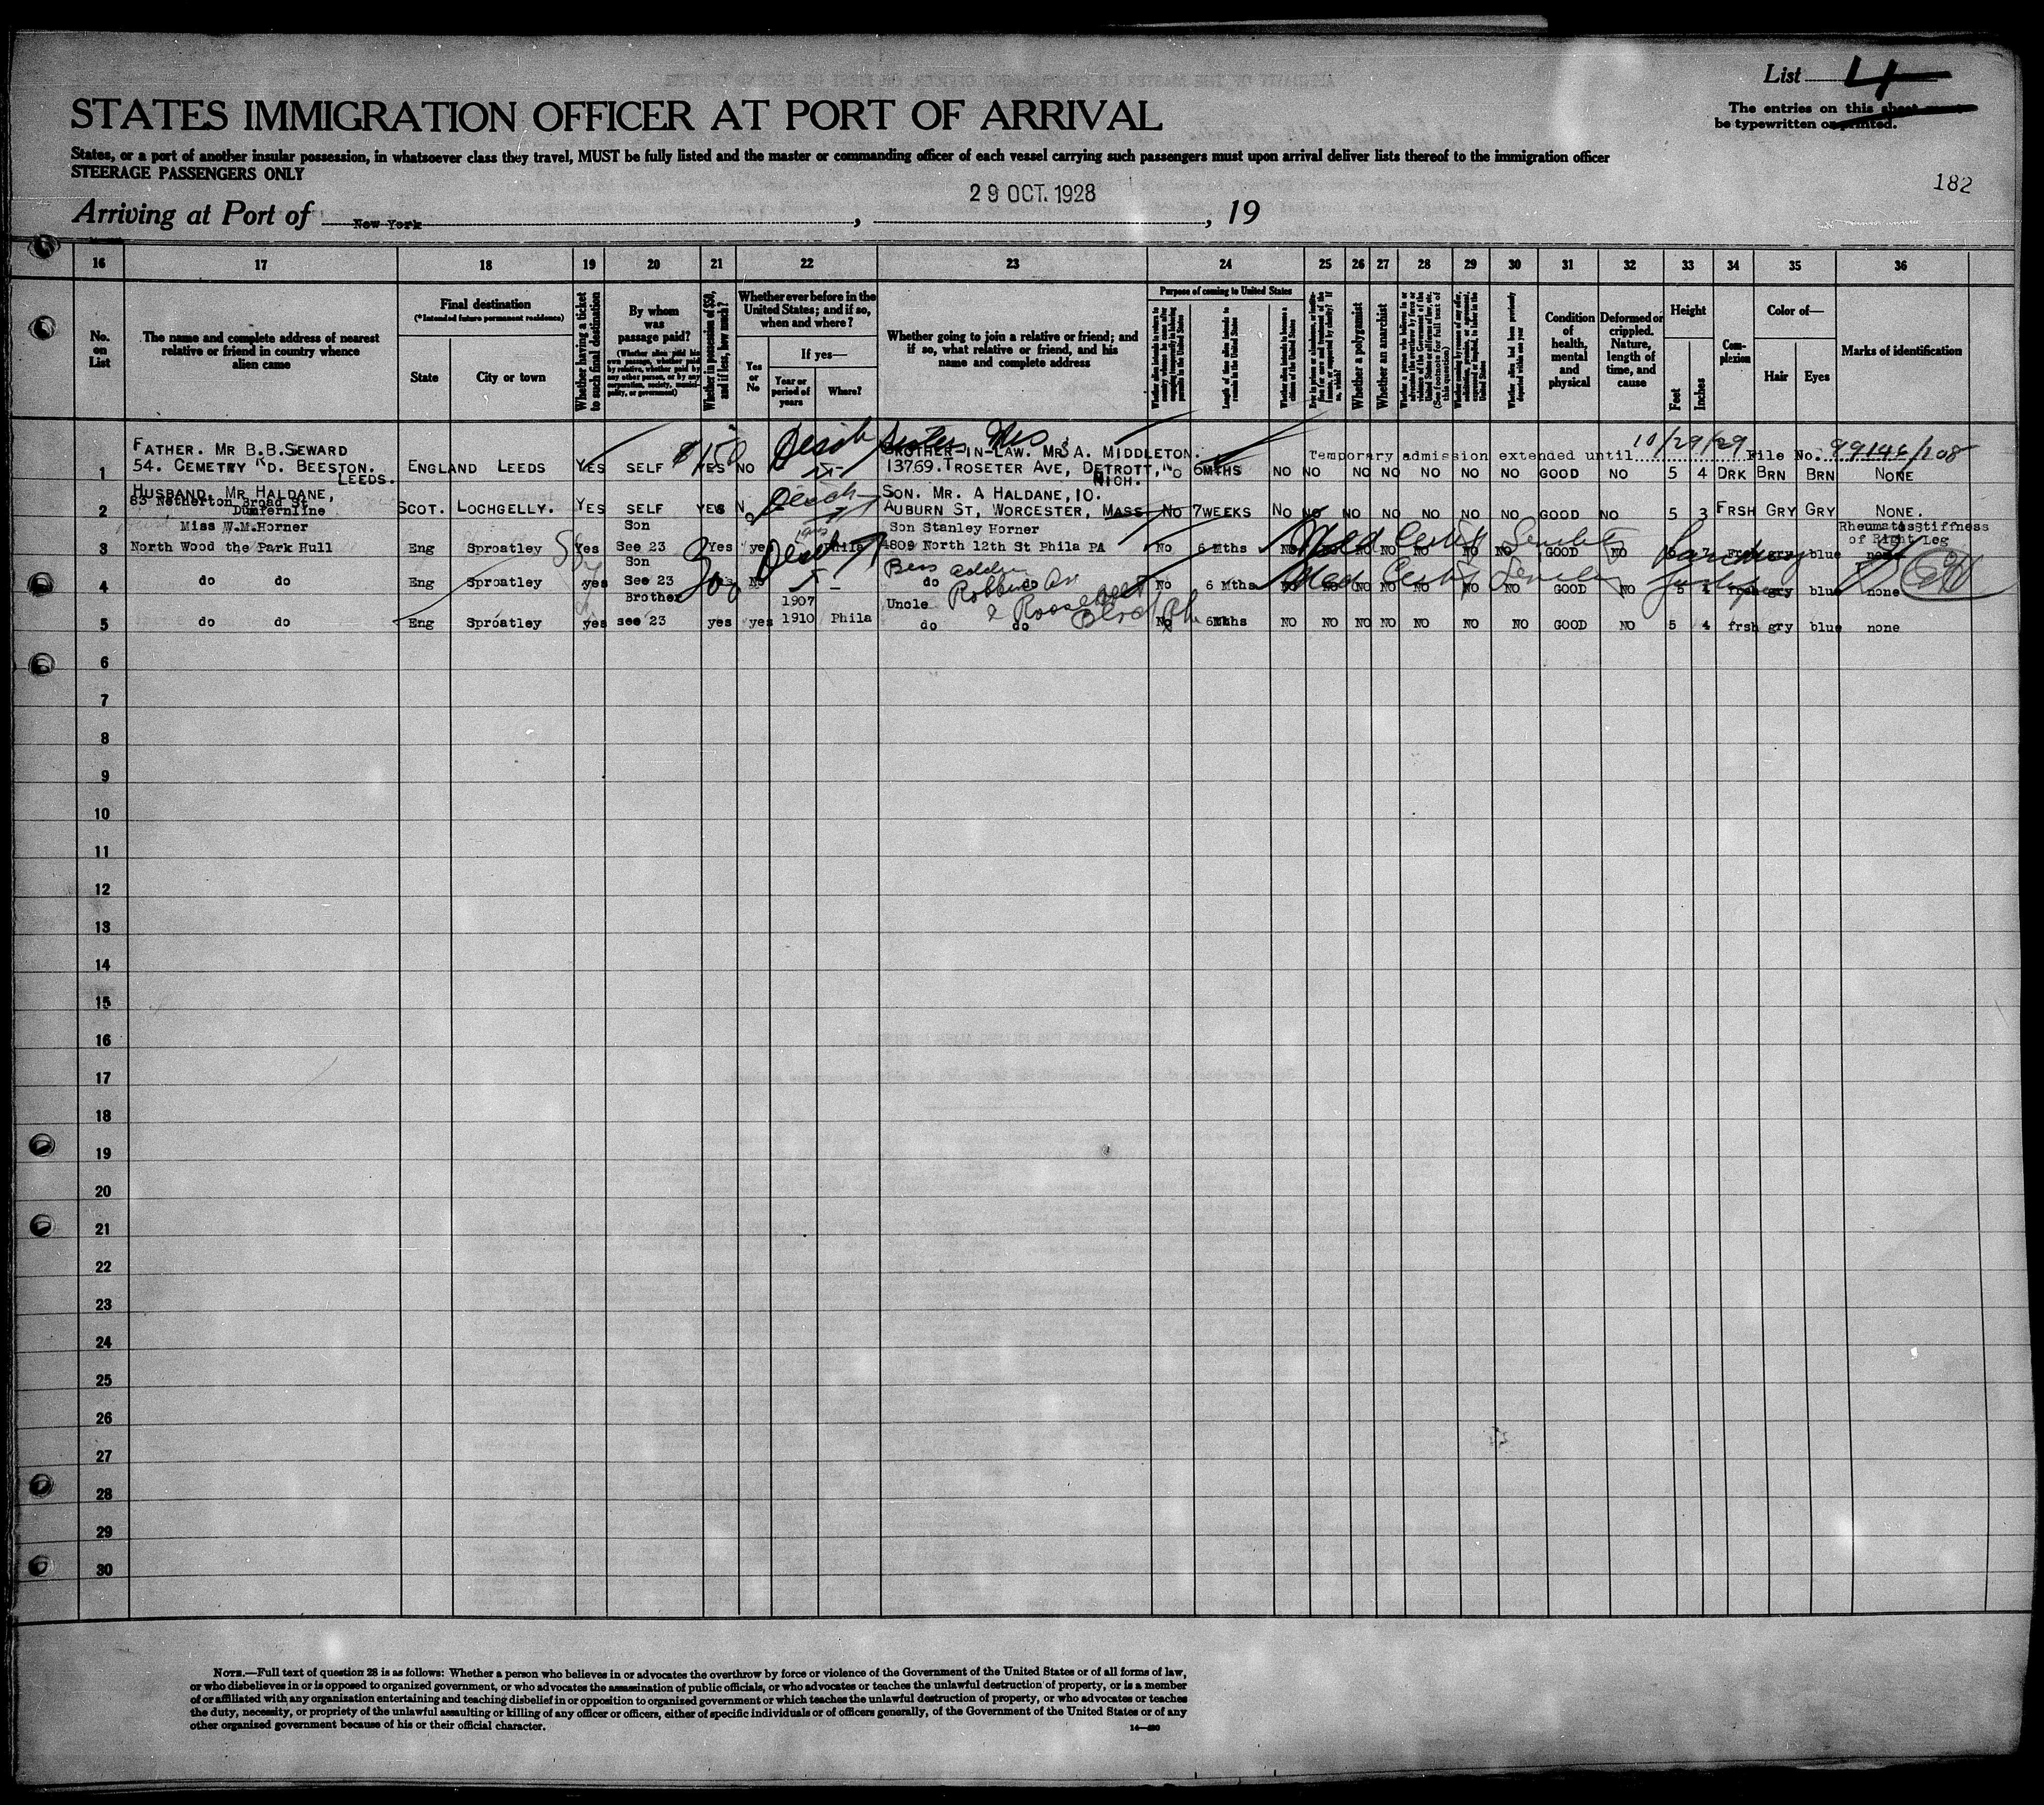 List 4
STATES IMMIGRATION OFFICER AT PORT OF ARRIVAL
The entries on this sheet must
be typewritten or printed.
States, or a port of another insular possession, in whatsoever class they travel, MUST be fully listed and the master or commanding officer of each vessel carrying such passengers must upon arrival deliver lists thereof to the immigration officer
STEERAGE PASSENGERS ONLY
182
Arriving at Port of New York, 29 OCT. 1928, 19
16 17 18 19 20 21 22 23 24 25 26 27 28 29 30 31 32 33 34 35 36
No. on List
The name and complete address of nearest
relative or friend in country whence
alien came
Final destination
(*Intended future permanent residence)
State
City or town
Whether having a ticket
to such final destination
By whom
was
passage paid?
(Whether alien paid his
own passage, whether paid
by relative, whether paid by
any other person, or by any
corporation, society, munici-
pality, or government)
Whether in possession of $50,
and if less, how much?
Whether ever before in the
United States; and if so,
when and where?
Yes
or
No
If yes—
Year or
period of
years
Where?
Whether going to join a relative or friend; and
if so, what relative or friend, and his
name and complete address
Purpose of coming to United States
Length of time alien intends to
remain in the United States
Whether alien intends to become a
citizen of the United States
Whether a polygamist
Whether an anarchist
Whether alien had been previously
deported within one year
Condition
of
health,
mental
and
physical
Deformed or
crippled.
Nature,
length of
time, and
cause
Height
Feet
Inches
Com-
plexion
Color of—
Hair
Eyes
Marks of identification
FATHER. MR B.B.SEWARD
Sister Mrs
BROTHER-IN-LAW. MRS A. MIDDLETON.
Temporary admission extended until 10/29/29 File No. 99146/208
1 54. CEMETRY RD. BEESTON. LEEDS. ENGLAND LEEDS YES SELF $150 YES NO 13769. TROSETER AVE, DETROTT, MICH. NO 6MTHS NO NO NO NO NO NO NO GOOD NO 5 4 DRK BRN BRN NONE
HUSBAND. MR HALDANE,
83 Netherton Broad St
Dunfernline
SON. MR. A HALDANE, 10.
2 SCOT. LOCHGELLY. YES SELF YES NO AUBURN ST, WORCESTER, MASS NO 7WEEKS NO NO NO NO NO NO NO GOOD NO 5 3 FRSH GRY GRY NONE.
Miss W.M.Horner
Son
Son Stanley Horner
Rheumatis Stiffness
of Right Leg
3 North Wood the Park Hull Eng Sproatley Yes See 23 Yes yes Phila 4809 North 12th St Phila PA No 6 Mths NO NO NO NO NO NO NO GOOD NO 5 7 Frsh gry blue none
Med Certif Senility
Son
4 do do Eng Sproatley yes See 23 30 Yes No — do do No 6 Mths NO NO NO NO NO NO NO GOOD NO 5 4 frsh gry blue none
Med Certif
Robbins Av
& Roosevelt
Blvd Ph
Brother
1907
Uncle
5 do do Eng Sproatley yes see 23 yes yes 1910 Phila do do No 6Mths NO NO NO NO NO NO NO GOOD NO 5 4 frsh gry blue none
6
7
8
9
10
11
12
13
14
15
16
17
18
19
20
21
22
23
24
25
26
27
28
29
30
NOTE.—Full text of question 28 is as follows: Whether a person who believes in or advocates the overthrow by force or violence of the Government of the United States or of all forms of law,
or who disbelieves in or is opposed to organized government, or who advocates the assassination of public officials, or who advocates or teaches the unlawful destruction of property, or is a member
of or affiliated with any organization entertaining and teaching disbelief in or opposition to organized government or which teaches the unlawful destruction of property, or who advocates or teaches
the duty, necessity, or propriety of the unlawful assaulting or killing of any officer or officers, either of specific individuals or of officers generally, of the Government of the United States or of any
other organized government because of his or their official character.